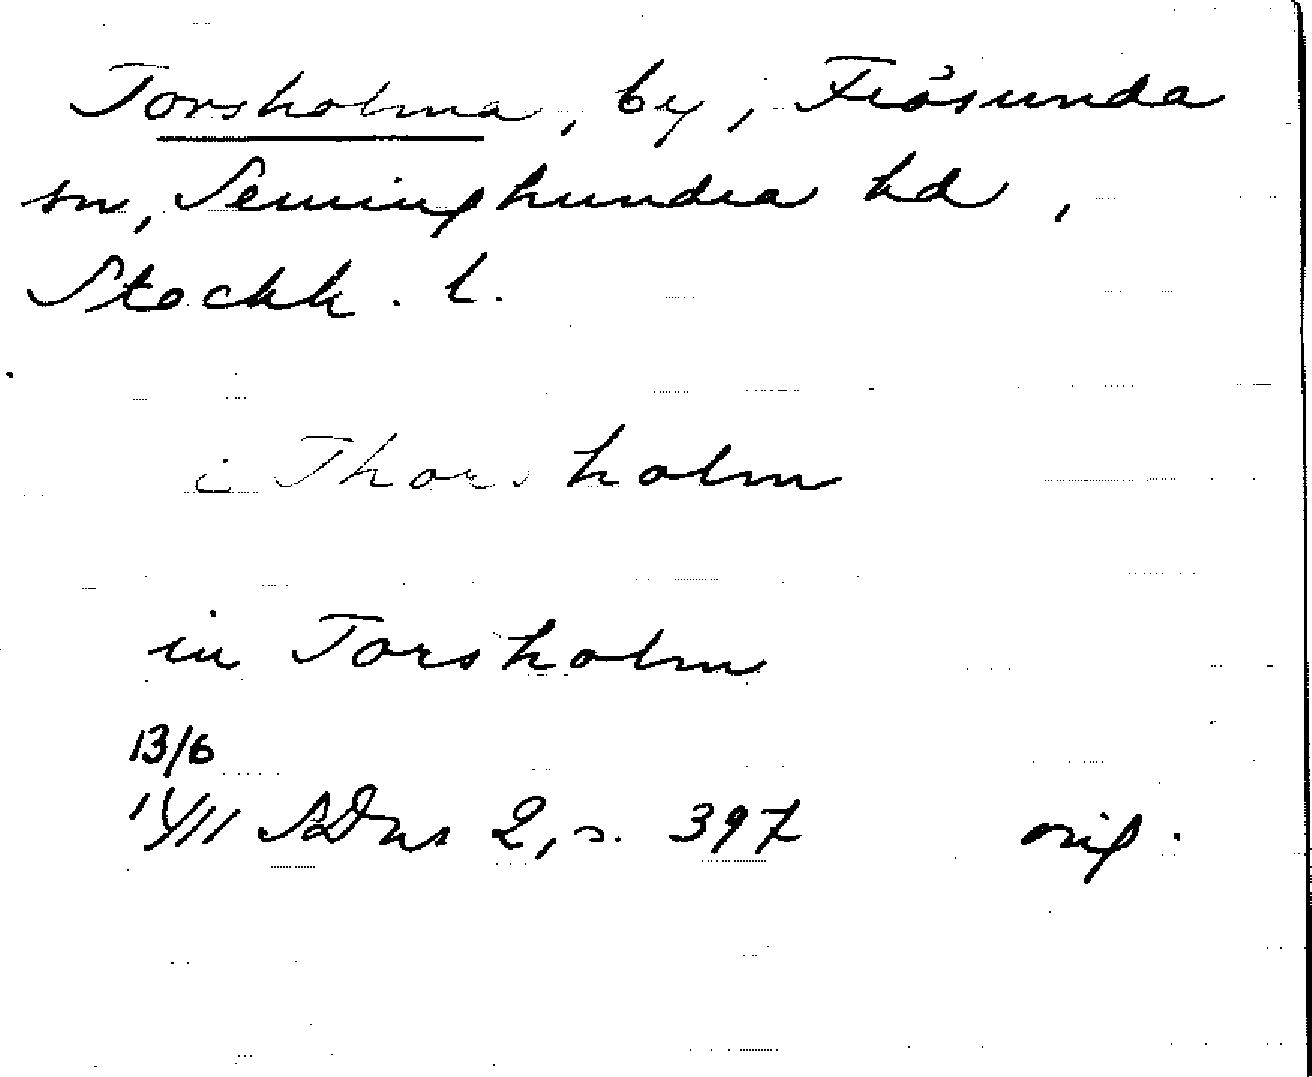 Torsholma, by, Frösunda
sn, Seminghundra hd,
Stockh. l.
i Thorsholm
in Torsholm
13/6
1411 SDns 2, s. 397 orig.